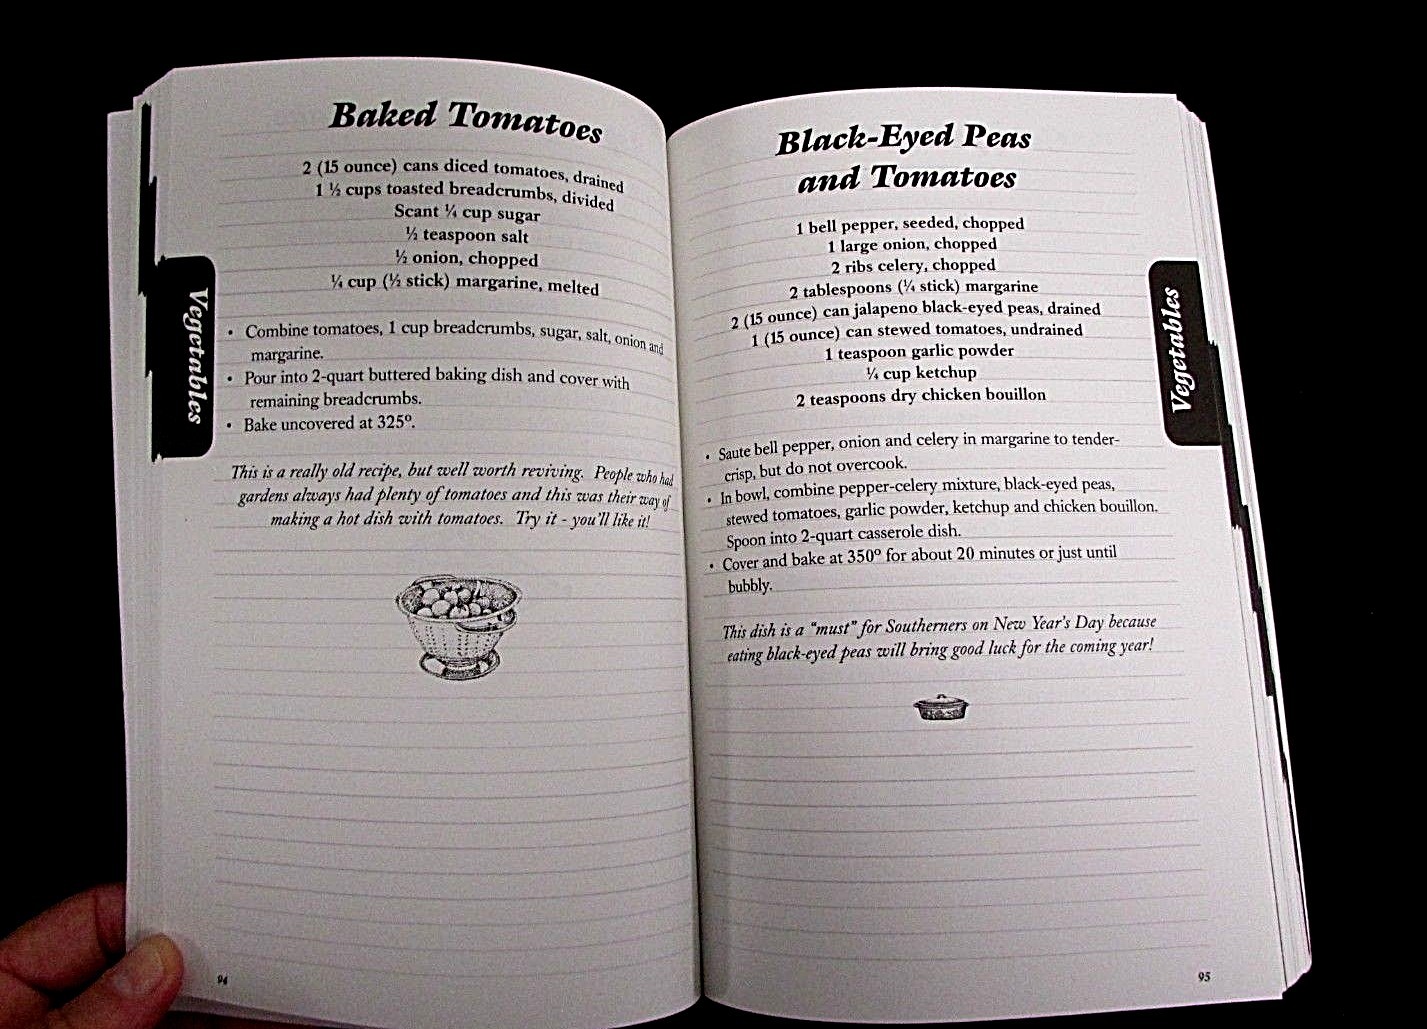 Baked Tomatoes
2 (15 ounce) cans diced tomatoes, drained
1 ½ cups toasted breadcrumbs, divided
Scant ¼ cup sugar
½ teaspoon salt
½ onion, chopped
¼ cup (½ stick) margarine, melted
• Combine tomatoes, 1 cup breadcrumbs, sugar, salt, onion and
margarine.
• Pour into 2-quart buttered baking dish and cover with
remaining breadcrumbs.
• Bake uncovered at 325º.
This is a really old recipe, but well worth reviving. People who had
gardens always had plenty of tomatoes and this was their way of
making a hot dish with tomatoes. Try it - you'll like it!
Vegetables
94
Black-Eyed Peas
and Tomatoes
1 bell pepper, seeded, chopped
1 large onion, chopped
2 ribs celery, chopped
2 tablespoons (¼ stick) margarine
2 (15 ounce) can jalapeno black-eyed peas, drained
1 (15 ounce) can stewed tomatoes, undrained
1 teaspoon garlic powder
¼ cup ketchup
2 teaspoons dry chicken bouillon
• Saute bell pepper, onion and celery in margarine to tender-
crisp, but do not overcook.
• In bowl, combine pepper-celery mixture, black-eyed peas,
stewed tomatoes, garlic powder, ketchup and chicken bouillon.
Spoon into 2-quart casserole dish.
• Cover and bake at 350º for about 20 minutes or just until
bubbly.
This dish is a "must" for Southerners on New Year's Day because
eating black-eyed peas will bring good luck for the coming year!
Vegetables
95